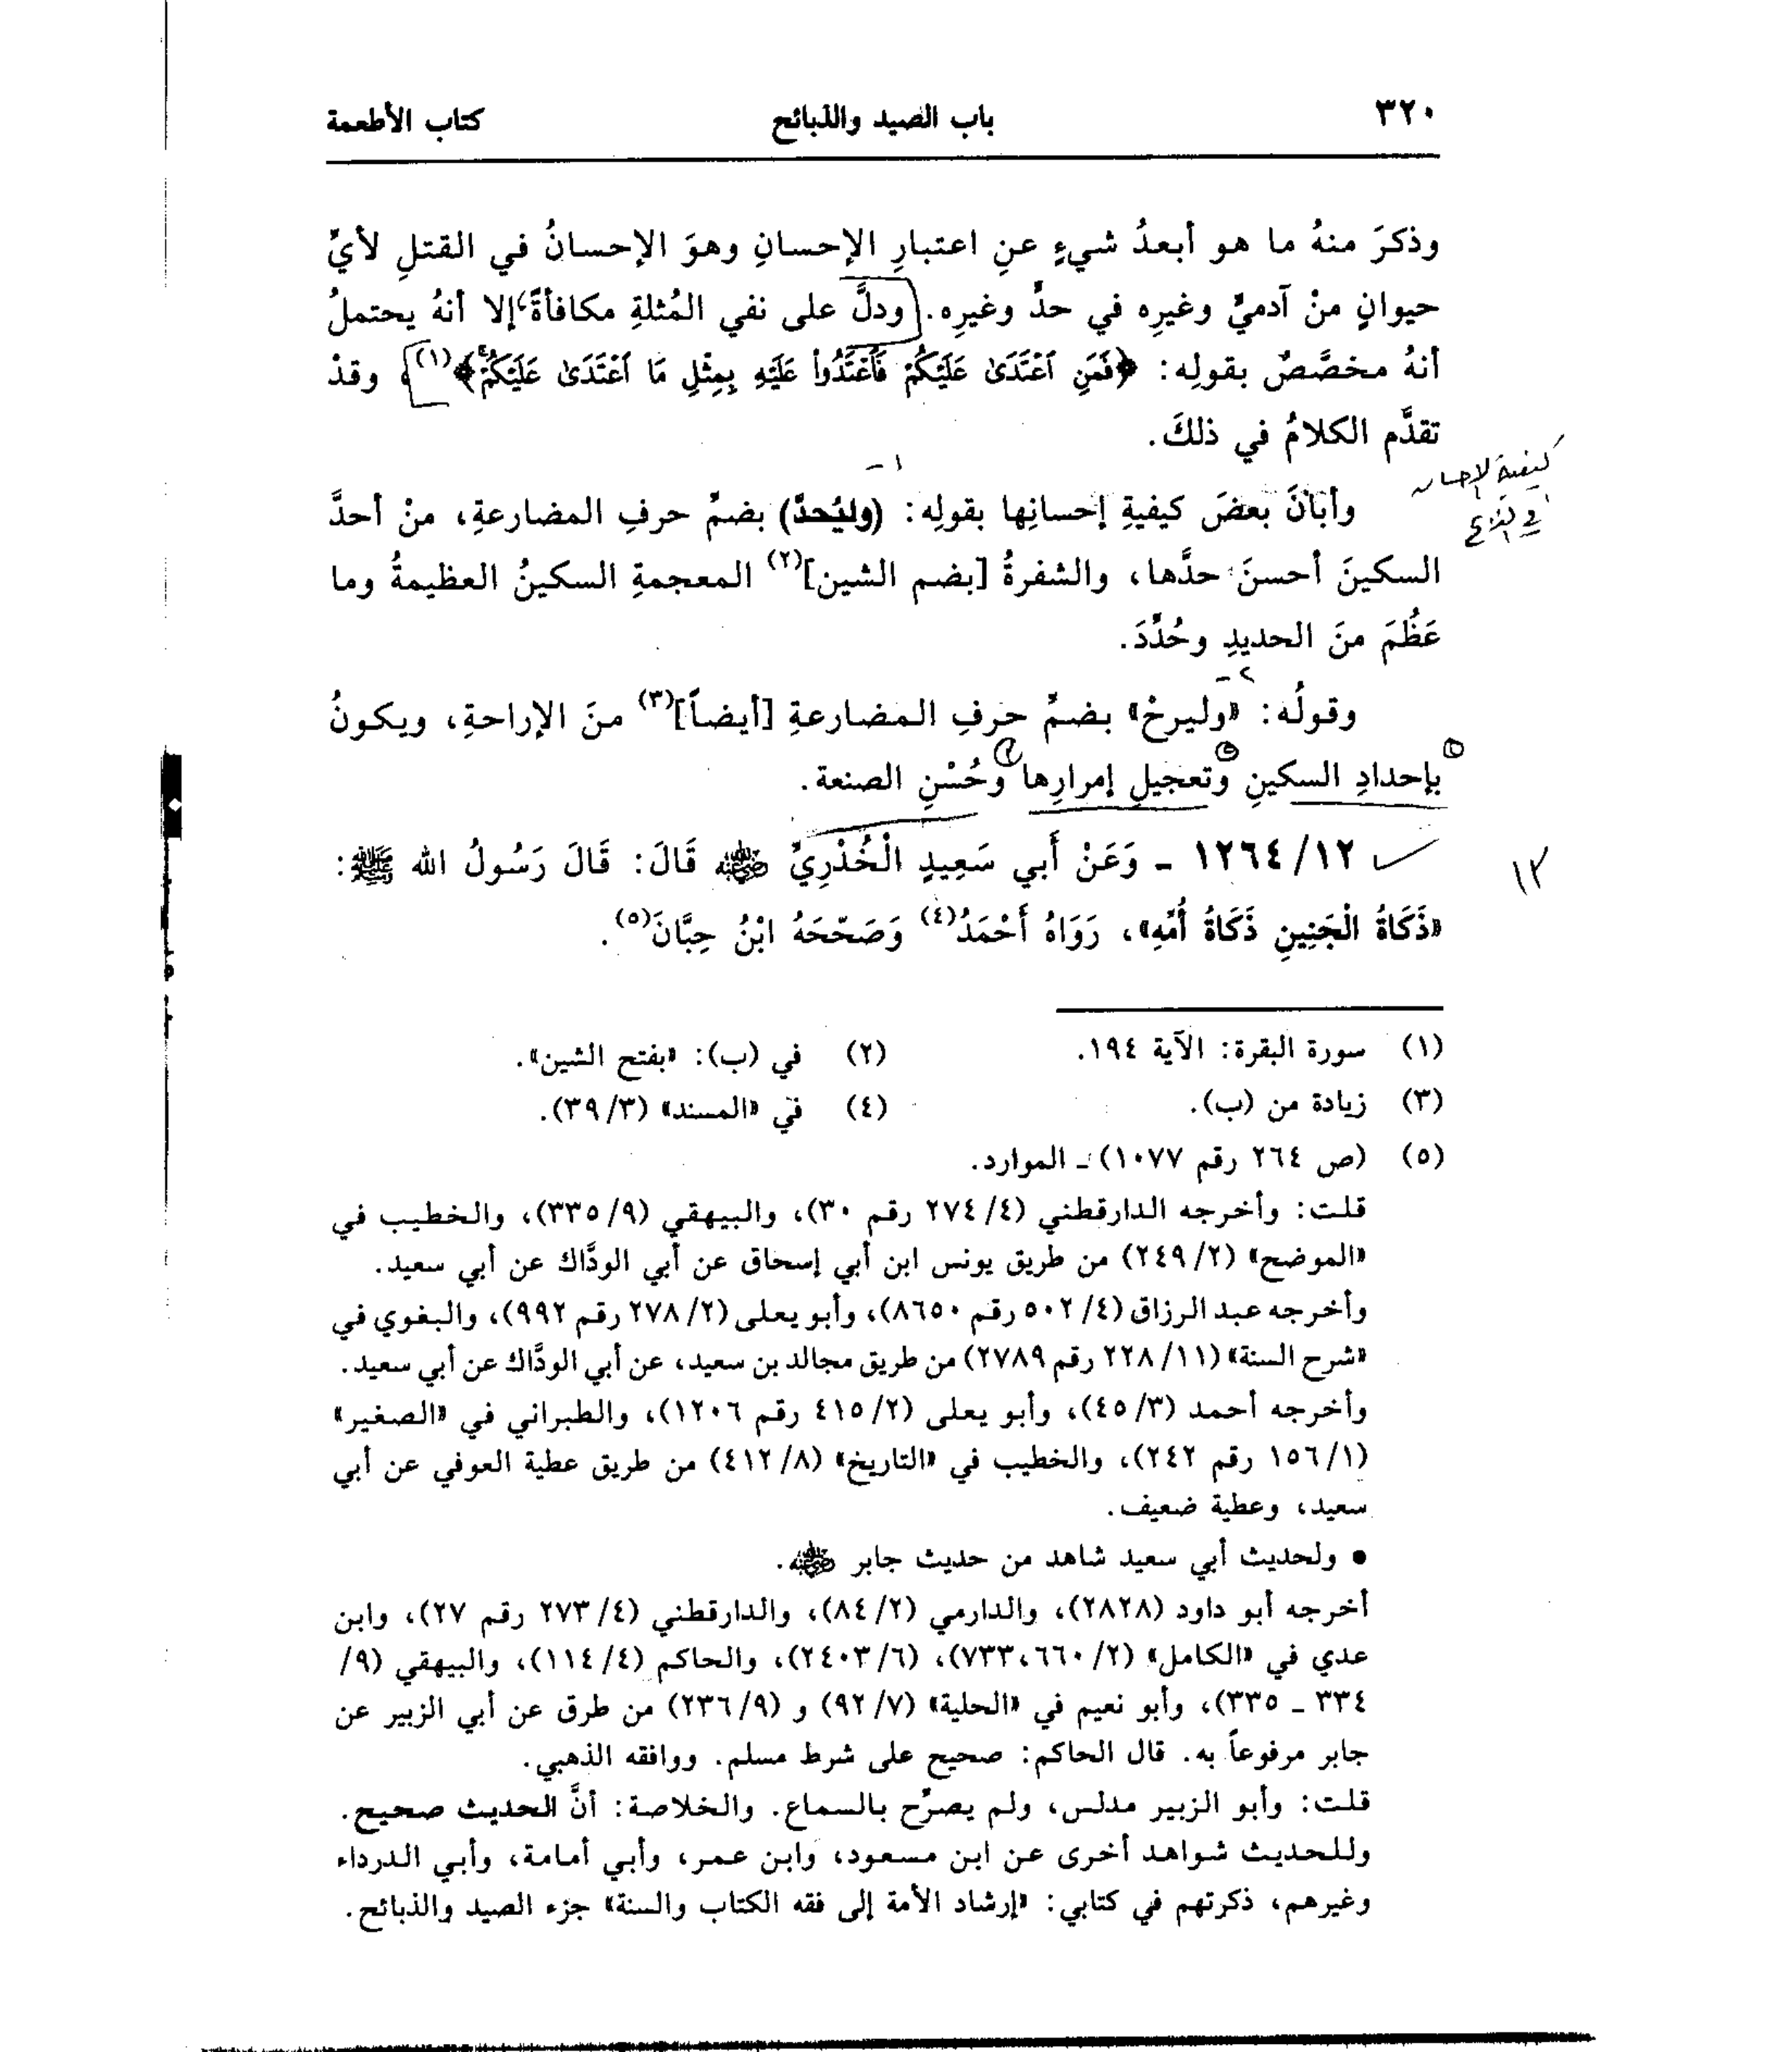 ٣٢٠ باب الصيد والذبائح كتاب الأطعمة
وذكرَ منهُ ما هو أبعدُ شيءٍ عنِ اعتبارِ الإحسانِ وهوَ الإحسانُ في القتلِ لأيِّ
حيوانٍ منْ آدميٍّ وغيرِه في حدٍّ وغيرِه. ودلَّ على نفي المُثلةِ مكافأةً، إلا أنهُ يحتملُ
أنهُ مخصَّصٌ بقولِه: ﴿فَمَنِ ٱعْتَدَىٰ عَلَيْكُمْ فَٱعْتَدُوا۟ عَلَيْهِ بِمِثْلِ مَا ٱعْتَدَىٰ عَلَيْكُمْ﴾(١)، وقدْ
تقدَّم الكلامُ في ذلكَ.
١ -
كيفية الإحسان
في الذبح
وأبانَ بعضَ كيفيةِ إحسانِها بقولِه: (وليُحدَّ) بضمِّ حرفِ المضارعةِ، منْ أحدَّ
السكينَ أحسنَ حدَّها، والشفرةُ [بضم الشين](٢) المعجمةِ السكينُ العظيمةُ وما
عَظُمَ منَ الحديدِ وحُدِّدَ.
٢ -
وقولُه: «وليرحْ» بضمِّ حرفِ المضارعةِ [أيضاً](٣) منَ الإراحةِ، ويكونُ
بإحدادِ السكينِ وتعجيلِ إمرارِها وحُسْنِ الصنعة.
١٢/ ١٢٦٤ - وَعَنْ أَبي سَعِيدٍ الْخُدْرِيِّ رضي الله عنه قَالَ: قَالَ رَسُولُ الله ﷺ:
١٢
«ذَكَاةُ الْجَنِينِ ذَكَاةُ أُمِّهِ»، رَوَاهُ أَحْمَدُ(٤) وَصَحّحَهُ ابْنُ حِبَّانَ(٥).
(١) سورة البقرة: الآية ١٩٤. (٢) في (ب): «بفتح الشين».
(٣) زيادة من (ب). (٤) في «المسند» (٣/ ٣٩).
(٥) (ص ٢٦٤ رقم ١٠٧٧) - الموارد.
قلت: وأخرجه الدارقطني (٤/ ٢٧٤ رقم ٣٠)، والبيهقي (٩/ ٣٣٥)، والخطيب في
«الموضح» (٢/ ٢٤٩) من طريق يونس ابن أبي إسحاق عن أبي الودَّاك عن أبي سعيد.
وأخرجه عبد الرزاق (٤/ ٥٠٢ رقم ٨٦٥٠)، وأبو يعلى (٢/ ٢٧٨ رقم ٩٩٢)، والبغوي في
«شرح السنة» (١١/ ٢٢٨ رقم ٢٧٨٩) من طريق مجالد بن سعيد، عن أبي الودَّاك عن أبي سعيد.
وأخرجه أحمد (٣/ ٤٥)، وأبو يعلى (٢/ ٤١٥ رقم ١٢٠٦)، والطبراني في «الصغير»
(١/ ١٥٦ رقم ٢٤٢)، والخطيب في «التاريخ» (٨/ ٤١٢) من طريق عطية العوفي عن أبي
سعيد، وعطية ضعيف.
• ولحديث أبي سعيد شاهد من حديث جابر رضي الله عنه.
أخرجه أبو داود (٢٨٢٨)، والدارمي (٢/ ٨٤)، والدارقطني (٤/ ٢٧٣ رقم ٢٧)، وابن
عدي في «الكامل» (٢/ ٦٦٠، ٧٣٣)، (٦/ ٢٤٠٣)، والحاكم (٤/ ١١٤)، والبيهقي (٩/
٣٣٤ - ٣٣٥)، وأبو نعيم في «الحلية» (٧/ ٩٢) و (٩/ ٢٣٦) من طرق عن أبي الزبير عن
جابر مرفوعاً به. قال الحاكم: صحيح على شرط مسلم. ووافقه الذهبي.
قلت: وأبو الزبير مدلس، ولم يصرِّح بالسماع. والخلاصة: أنَّ الحديث صحيح.
وللحديث شواهد أخرى عن ابن مسعود، وابن عمر، وأبي أمامة، وأبي الدرداء
وغيرهم، ذكرتهم في كتابي: «إرشاد الأمة إلى فقه الكتاب والسنة» جزء الصيد والذبائح.